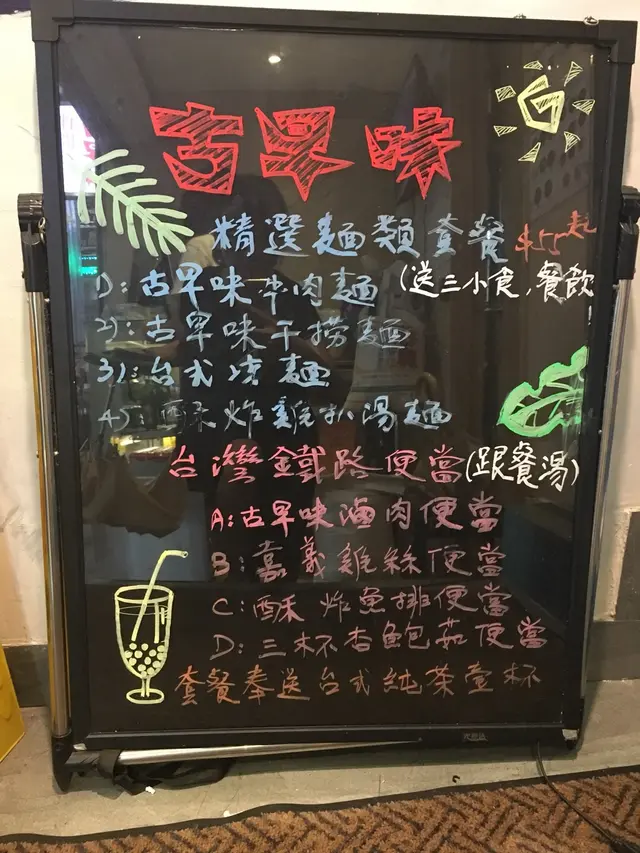 古早味
精選麵類套餐 $55起
1): 古早味牛肉麵 (送三小食,餐飲
2): 古早味干撈麵
3): 台式凉麵
4): 酥炸雞扒湯麵
台灣鐵路便當(跟餐湯)
A: 古早味滷肉便當
B: 嘉義雞絲便當
C: 酥炸魚排便當
D: 三杯杏鮑菇便當
套餐奉送台式純茶壹杯